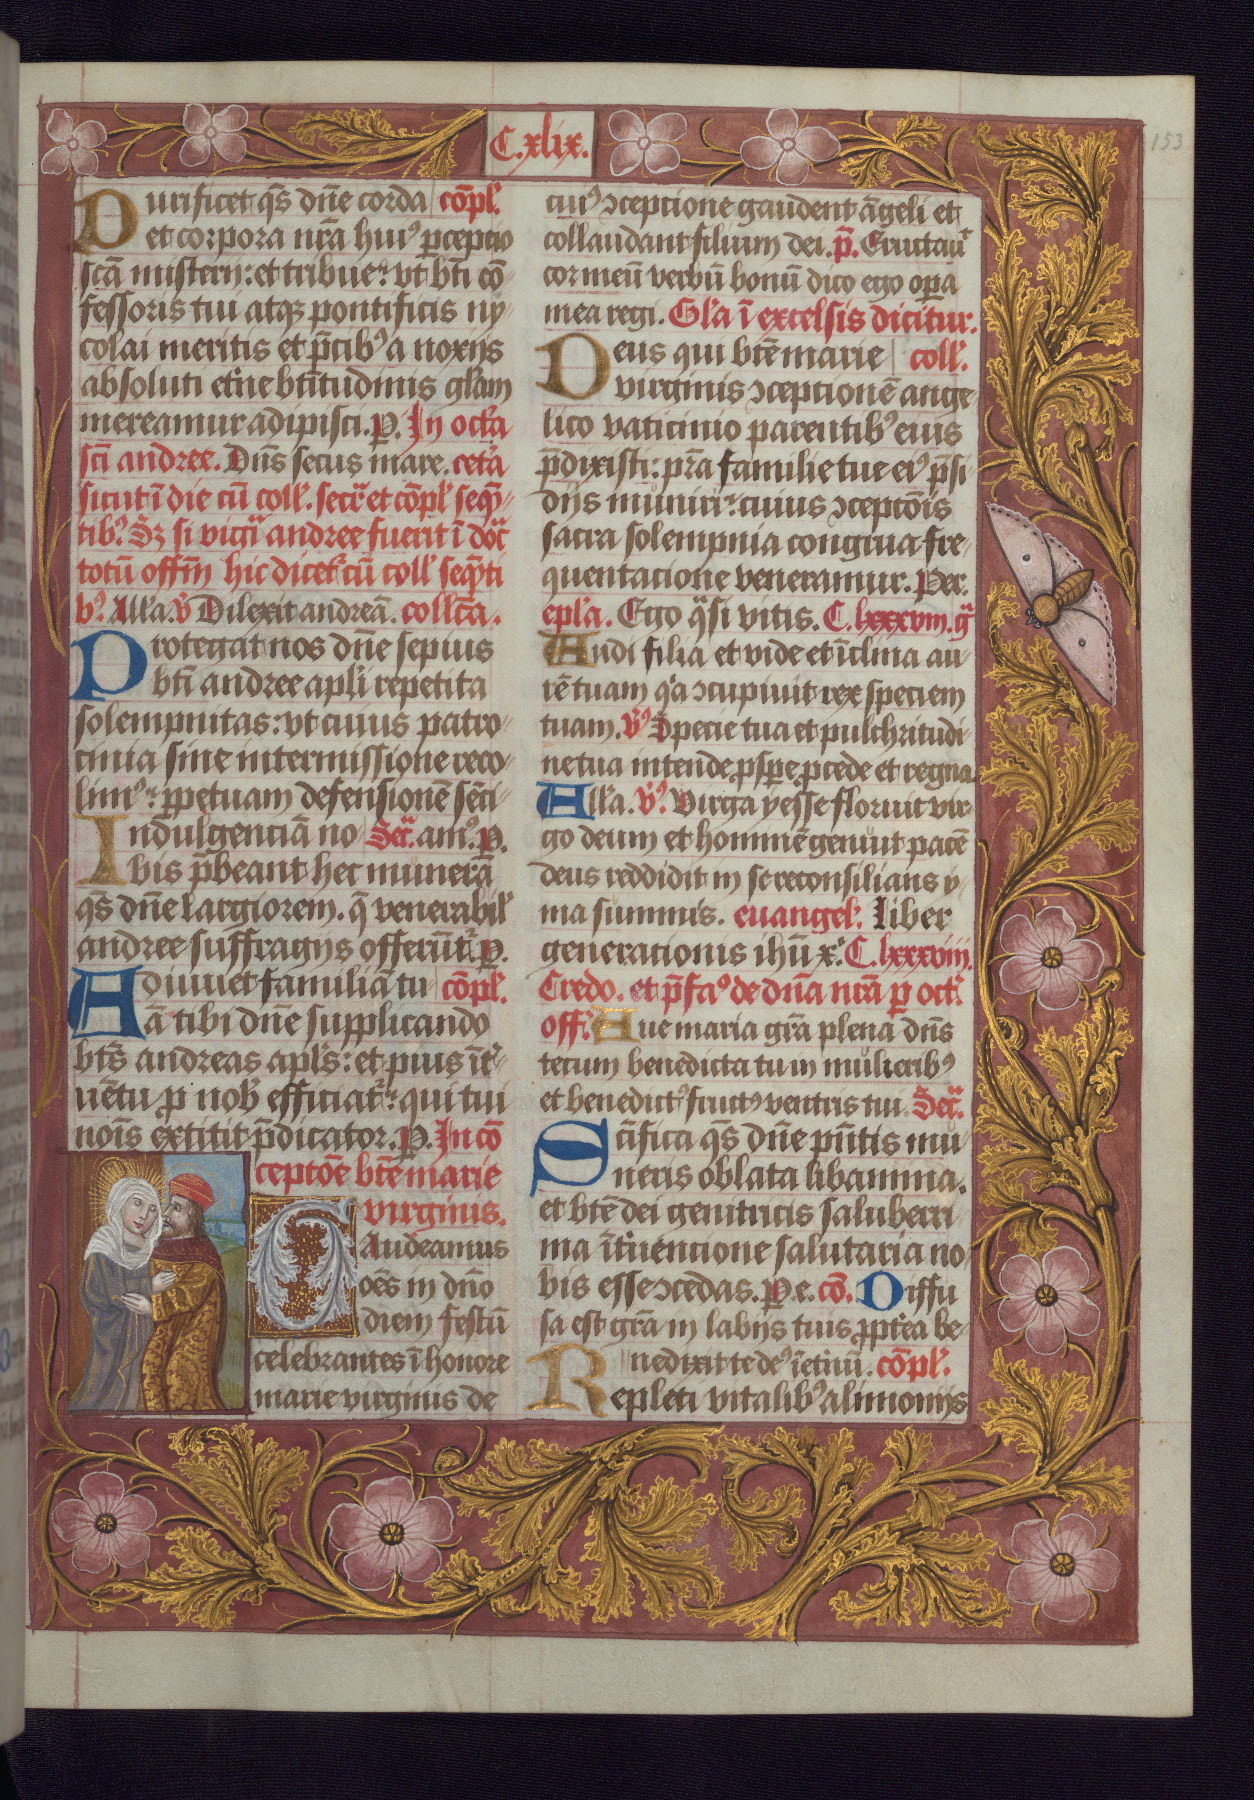 C.xlix.
153
Purificet q̄s dn̄e corda cōpl'.
et corpora nr̄a hui⁹ ꝑceptio
scā misterii: et tribue: vt bt̄i cō
fessoris tui atqꝫ pontificis ny
colai meritis et p̄cib⁹ a noxijs
absoluti et̄ne bt̄itudinis gl'am
mereamur adipisci. P. In octa
sc̄i andree. Dn̄s secus mare. cet̄a
sicut ī die cū coll'. secr̄ et cōpl' seq̄n
tib⁹. Sꝫ si vigi' andree fuerit ī doc̄
totū offm̄ hic dicet̄ cū coll' seq̄nti
b⁹. Alla. v̄ Dilexit andreā. collc̄a.
Protegat nos dn̄e sepius
bt̄i andree apl'i repetita
solempnitas: vt cuius patro
cinia sine intermissione reco
lim⁹: ꝑpetuam defensionē sēci
Indulgenciā no Secr̄. am⁹. P.
bis p̄beant hec munera
q̄s dn̄e largiorem. q̄ venerabil'
andree suffragijs offerūt̄. P.
Adiuuet familiā tu cōpl'.
ā tibi dn̄e supplicando
bt̄s andreas apl's: et pius īt̄
uētu p nob̄ efficiat̄: qui tui
nōis extitit p̄dicator. P. In cō
ceptōe bt̄e marie
virginis.
Gaudeamus
oēs in dn̄o
diem festū
celebrantes ī honore
marie virginis de
cui⁹ ɔceptione gaudent āgeli et
collaudant filium dei. p̄. Eructau̅
cor meū verbū bonū dico ego oꝑa
mea regi. Gl'a ī excelsis dicitur.
Deus qui bt̄e marie coll'.
virginis ɔceptionē ange
lico vaticinio parentib⁹ eius
p̄dixisti: pr̄a familie tue ei⁹ p̄si
dijs muniri: cuius ɔceptōis
sacra solempnia congrua fre
quentacione veneramur. Per.
epl'a. Ego q̄si vitis. C. lxxxviii. ḡ
Audi filia et vide et īclina au
rē tuam q̇a ɔcupiuit rex speciem
tuam. v̄⁹ Specie tua et pulchritudi
ne tua intende ꝓspe ꝓcede et regna
Alla. v̄⁹. Virga yesse floruit vir
go deum et hominē genuit pacē
deus reddidit in se reconsilians y
ma summis. euangel'. Liber
generationis ihū x̄. C. lxxxviii.
Credo. et p̄fac̄o de dn̄a nr̄a p oct'
off. Aue maria gr̄a plena dn̄s
tecum benedicta tu in mulierib⁹
et benedict⁹ fruct⁹ ventris tui. Secr̄.
Sc̄ifica q̄s dn̄e pn̄tis mu
neris oblata libamina.
et bt̄e dei genitricis saluberri
ma īt̄uencione salutaria no
bis esse ɔcedas. P. e. cō. Diffu
sa est gr̄a in labijs tuis ꝓpt̄ea be
nedixit te de⁹ īet̄nū. cōpl'.
Repleti vitalib⁹ alimonijs